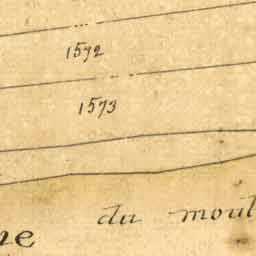 1572
1573
du moul
ne